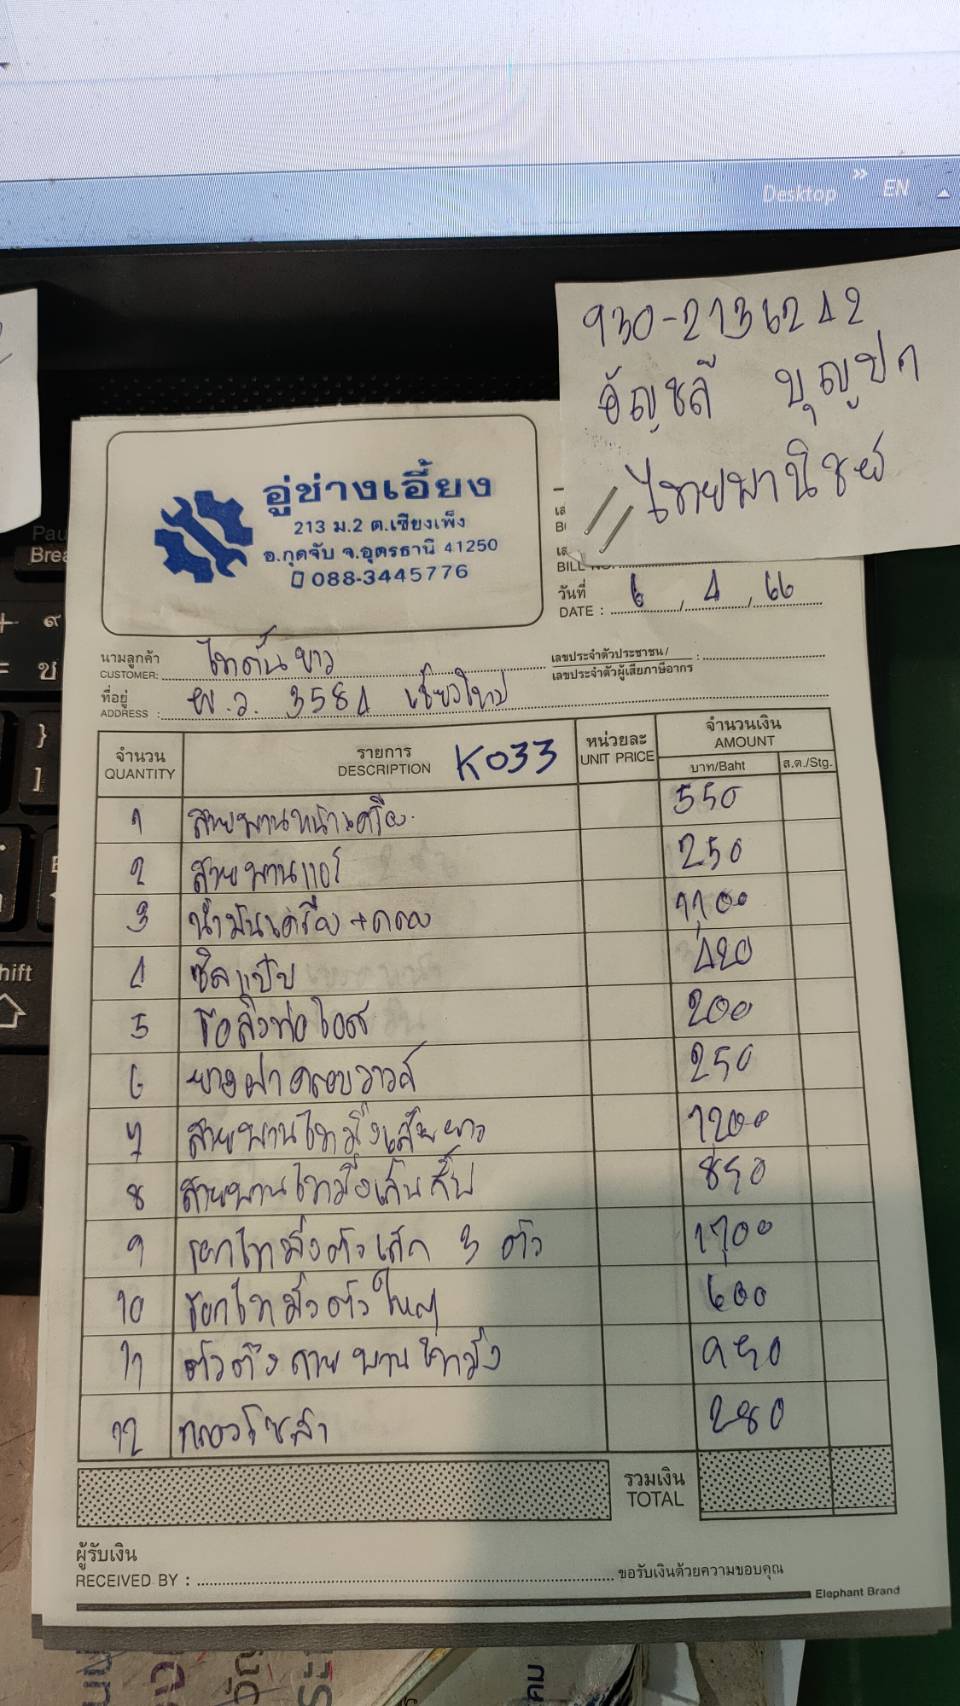 Desktop » EN
930-2136242
อัญชลี บุญปก
ไทยพานิชย์
อู่ช่างเอี้ยง
213 ม.2 ต.เชียงเพ็ง
อ.กุดจับ จ.อุดรธานี 41250
088-3445776
BILL NO.
วันที่
DATE : 6 / 4 / 66
นามลูกค้า
CUSTOMER: ไทตั้นขาว
เลขประจำตัวประชาชน / :
เลขประจำตัวผู้เสียภาษีอากร
ที่อยู่
ADDRESS : ผ.ว. 3584 เชียงใหม่
จำนวน
QUANTITY
รายการ
DESCRIPTION K033
หน่วยละ
UNIT PRICE
จำนวนเงิน
AMOUNT
บาท/Baht ส.ต./Stg.
1 สายพานหน้าเครื่อง 550
2 สายพานแอร์ 250
3 น้ำมันเครื่อง+กรอง 1100
4 ซิลแป๊ป 420
5 ข้อลิ้งท่อไอดี 200
6 ยางฝาครอบวาวล์ 250
7 สายพานไทมิ่งเส้นยาว 1200
8 สายพานไทมิ่งเส้นสั้น 850
9 รอกไทมิ่งตัวเล็ก 3 ตัว 1700
10 รอกไทมิ่งตัวใหญ่ 600
11 ตัวตั้งสายพานไทมิ่ง 950
12 กรองโซล่า 280
รวมเงิน
TOTAL
ผู้รับเงิน
RECEIVED BY : ขอรับเงินด้วยความขอบคุณ
Elephant Brand